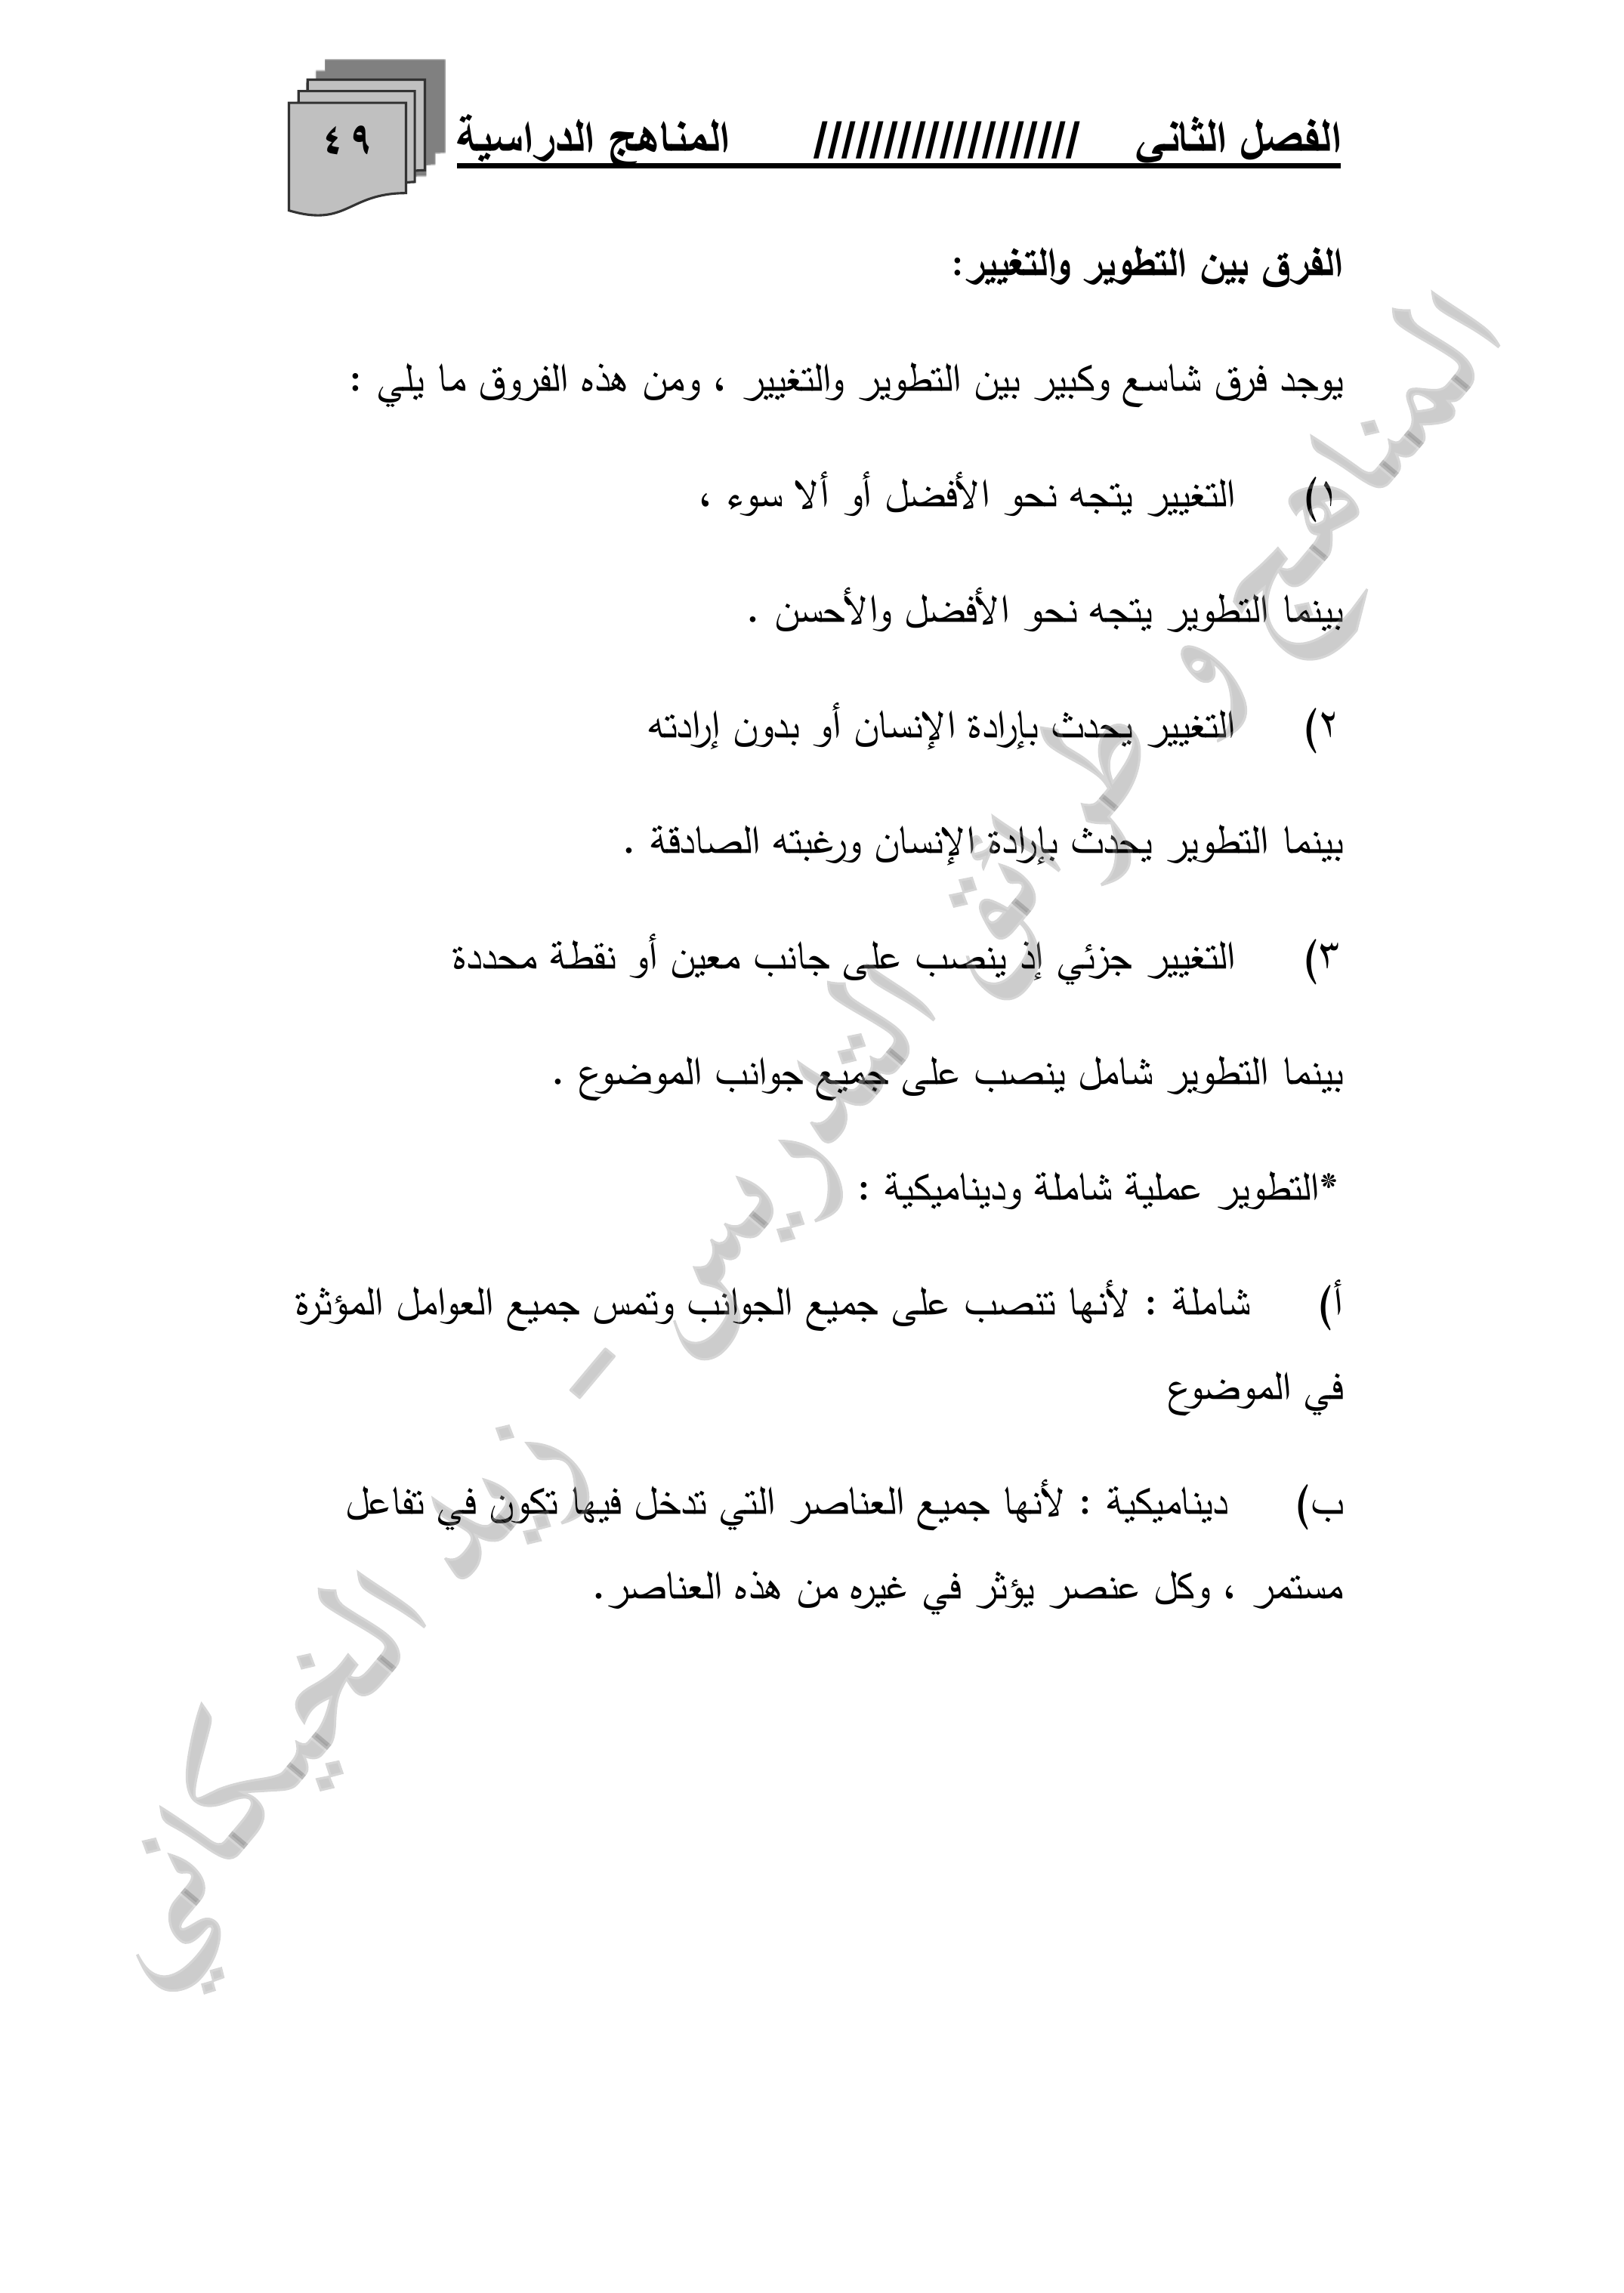 الفصل الثاني /////////////////// المناهج الدراسية ٤٩
الفرق بين التطوير والتغيير:
يوجد فرق شاسع وكبير بين التطوير والتغيير ، ومن هذه الفروق ما يلي :
١) التغيير يتجه نحو الأفضل أو ألا سوء ،
بينما التطوير يتجه نحو الأفضل والأحسن .
٢) التغيير يحدث بإرادة الإنسان أو بدون إرادته
بينما التطوير يحدث بإرادة الإنسان ورغبته الصادقة .
٣) التغيير جزئي إذ ينصب على جانب معين أو نقطة محددة
بينما التطوير شامل ينصب على جميع جوانب الموضوع .
*التطوير عملية شاملة وديناميكية :
أ) شاملة : لأنها تنصب على جميع الجوانب وتمس جميع العوامل المؤثرة
في الموضوع
ب) ديناميكية : لأنها جميع العناصر التي تدخل فيها تكون في تفاعل
مستمر ، وكل عنصر يؤثر في غيره من هذه العناصر.
المناهج و طرائق التدريس - زيد الخيكاني